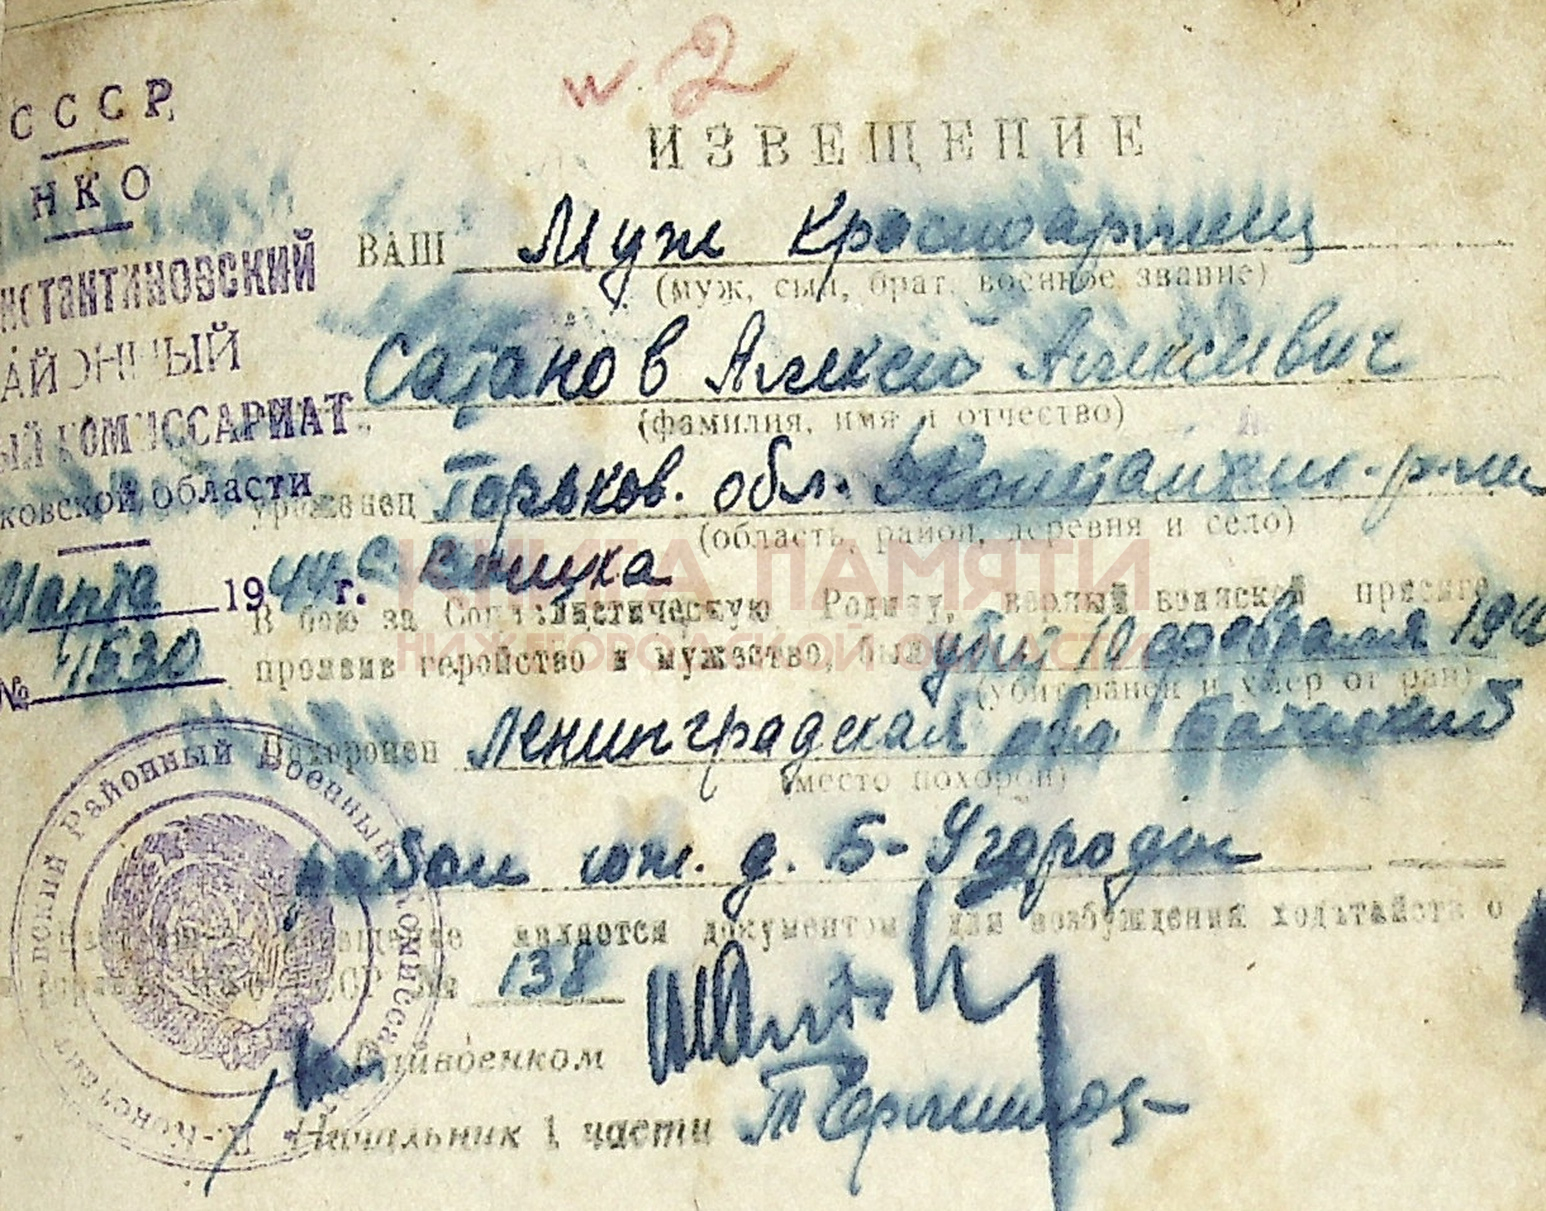 № 2
СССР
НКО
нстантиновский
айонный
ый комиссариат
ковской области
Марта 1944 г.
№ 1530
ИЗВЕЩЕНИЕ
ВАШ Муж Красноармеец
(муж, сын, брат, военное звание)
Сатанов Алексей Алексеевич
(фамилия, имя и отчество)
уроженец Горьков. обл.
(область, район, деревня и село)
В бою за Социалистическую Родину, верный воинской присяге,
проявив геройство и мужество, был убит 10 февраля 194
(убит, ранен и умер от ран)
Похоронен Ленинградская обл
(место похорон)
район юж. д. Б-Угороди
является документом для возбуждения ходатайств о
СССР № 138
Райвоенком
Начальник 1 части
Районный Военный Комиссариат
КНИГА ПАМЯТИ
НИЖЕГОРОДСКОЙ ОБЛАСТИ